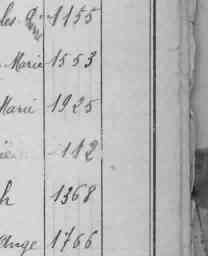 les 1155
Marie 1553
Marie 1925
112
h 1368
ange 1766